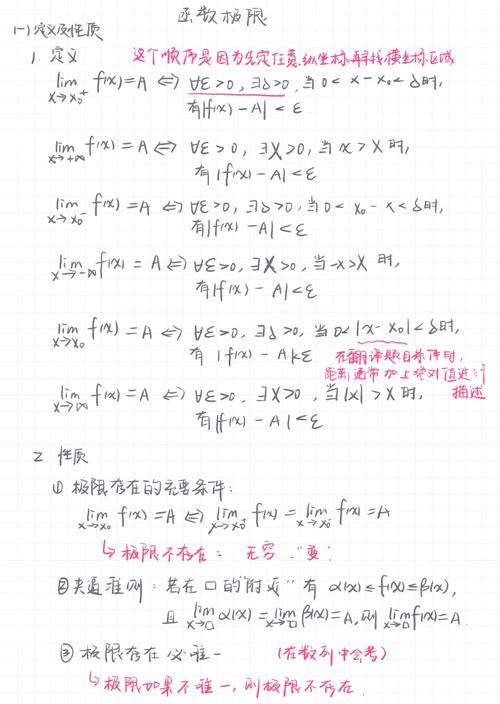 函数极限
(一)定义及性质
1. 定义 这个顺序是因为先定任意纵坐标再找横坐标区域
lim x→x₀⁺ f(x)=A ⇔ ∀ε>0, ∃δ>0, 当 0<x-x₀<δ时,
有|f(x)-A|<ε
lim x→+∞ f(x)=A ⇔ ∀ε>0, ∃X>0, 当 x>X 时,
有|f(x)-A|<ε
lim x→x₀⁻ f(x)=A ⇔ ∀ε>0, ∃δ>0, 当 0<x₀-x<δ时,
有|f(x)-A|<ε
lim x→-∞ f(x)=A ⇔ ∀ε>0, ∃X>0, 当 -x>X 时,
有|f(x)-A|<ε
lim x→x₀ f(x)=A ⇔ ∀ε>0, ∃δ>0, 当 0<|x-x₀|<δ时,
有|f(x)-A|<ε 在翻译题目条件时,
距离通常加上绝对值进行
lim x→∞ f(x)=A ⇔ ∀ε>0, ∃X>0, 当|x|>X 时, 描述
有|f(x)-A|<ε
2 性质
① 极限存在的充要条件:
lim x→x₀ f(x)=A ⇔ lim x→x₀⁺ f(x)=lim x→x₀⁻ f(x)=A
↳极限不存在: 无穷 "变"
②夹逼准则: 若在□的"附近"有 α(x)≤f(x)≤β(x),
且 lim x→□ α(x)=lim x→□ β(x)=A, 则 lim x→□ f(x)=A.
③ 极限存在必唯一 (在数列中会考)
↳极限如果不唯一, 则极限不存在.